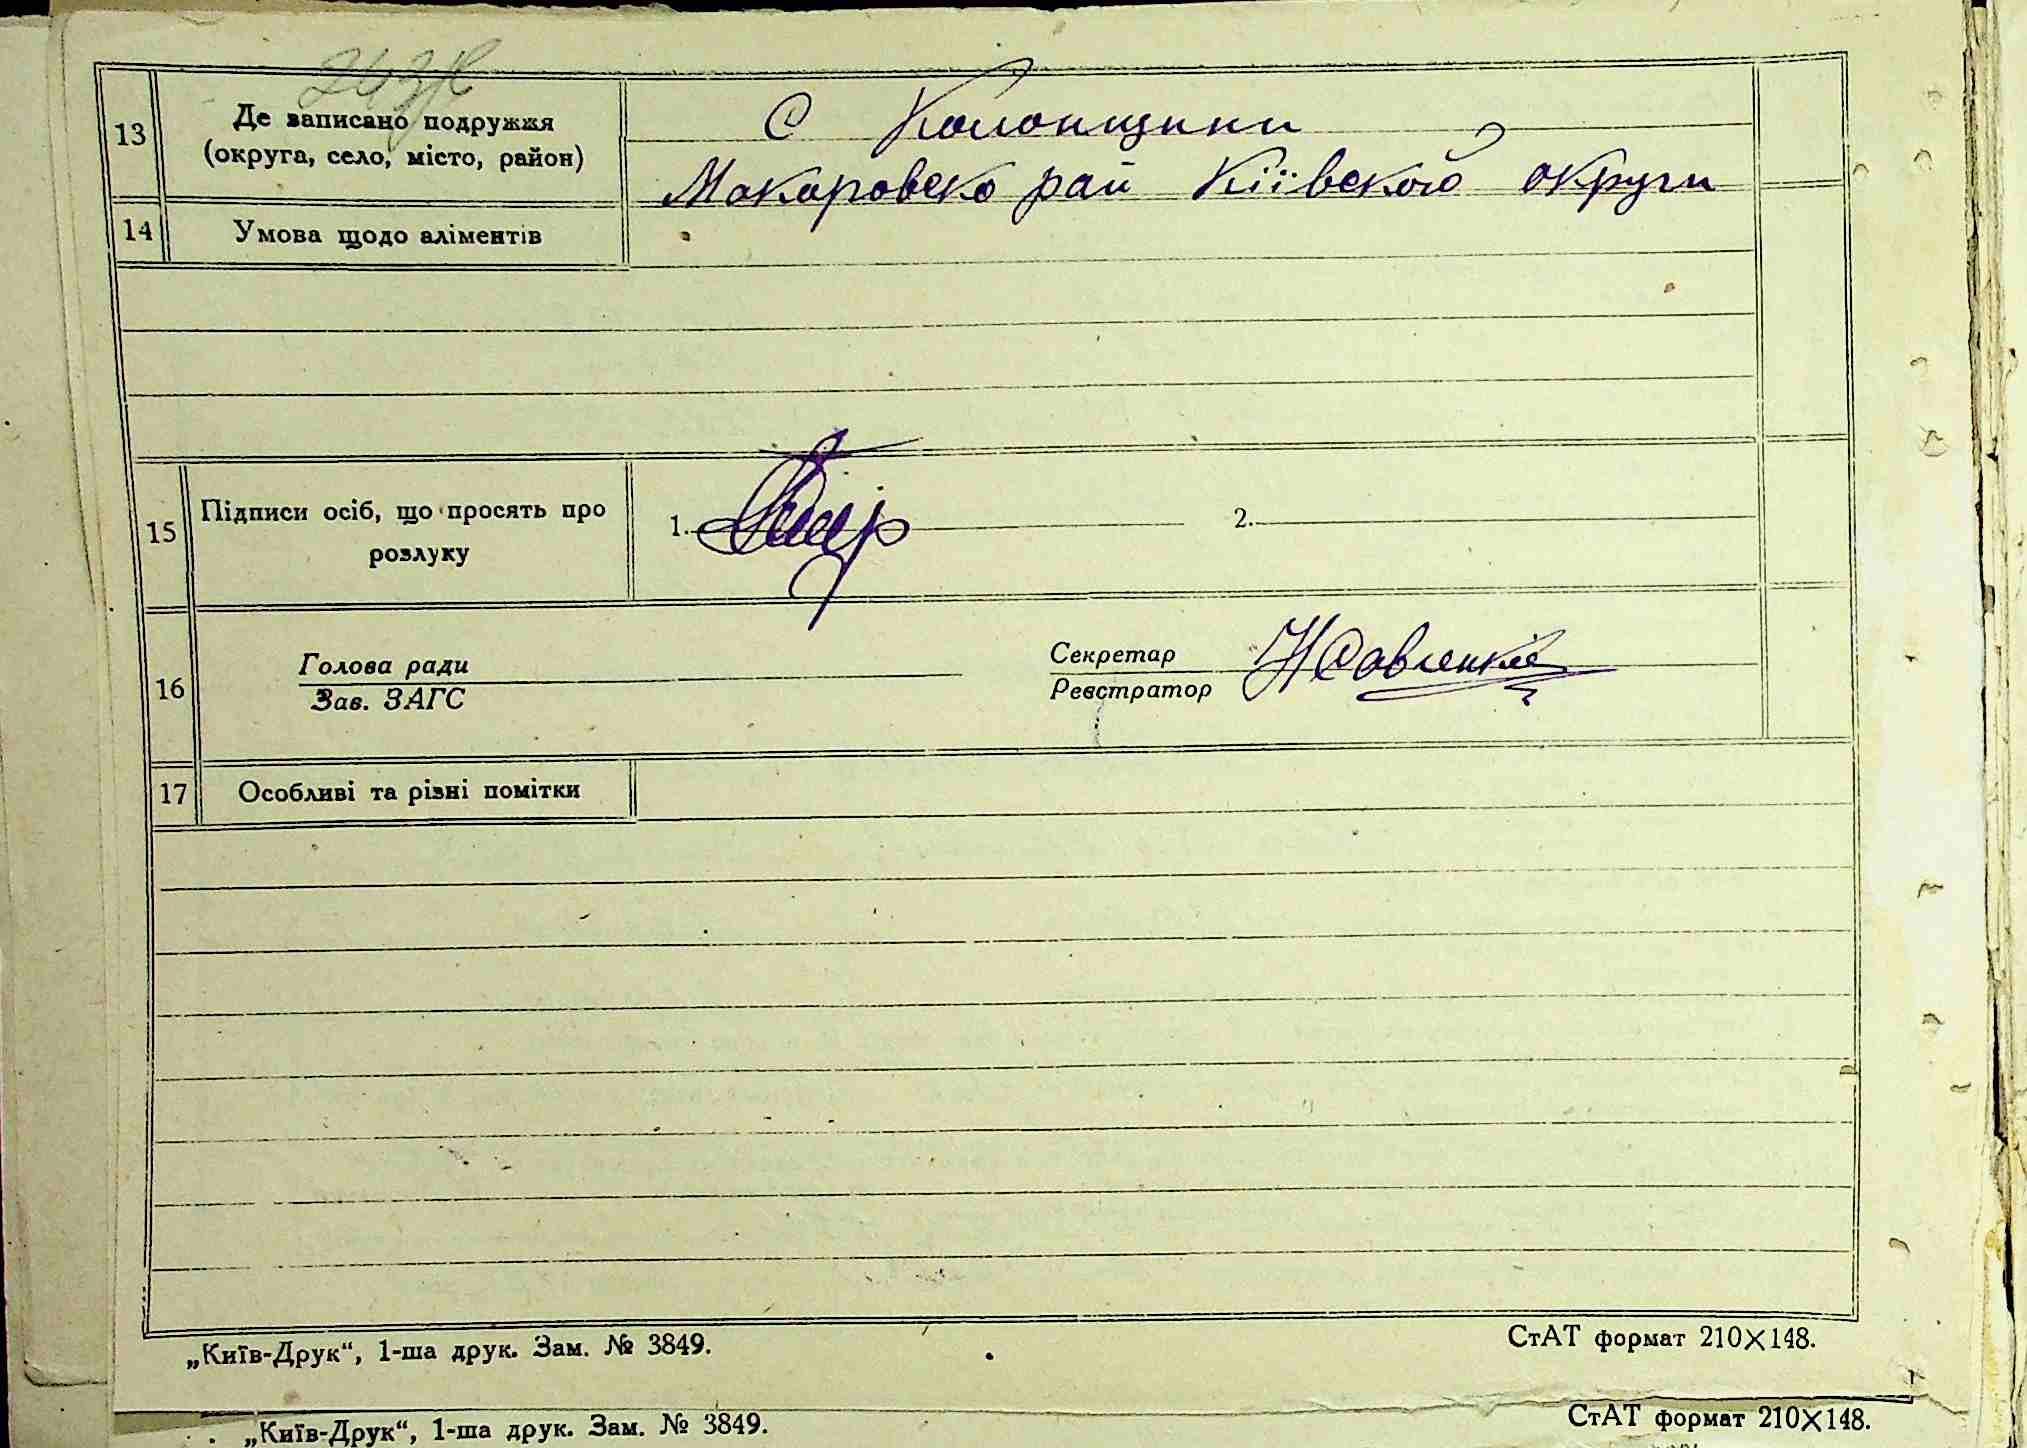 13
Де записано подружжя
(округа, село, місто, район)
С Колонщини
Макаровско рай Київской округи
14
Умова щодо аліментів
15
Підписи осіб, що просять про
розлуку
1.
2.
16
Голова ради
Зав. ЗАГС
Секретар
Реєстратор
17
Особливі та різні помітки
„Київ-Друк“, 1-ша друк. Зам. № 3849.
СтАТ формат 210×148.
„Київ-Друк“, 1-ша друк. Зам. № 3849.
СтАТ формат 210×148.